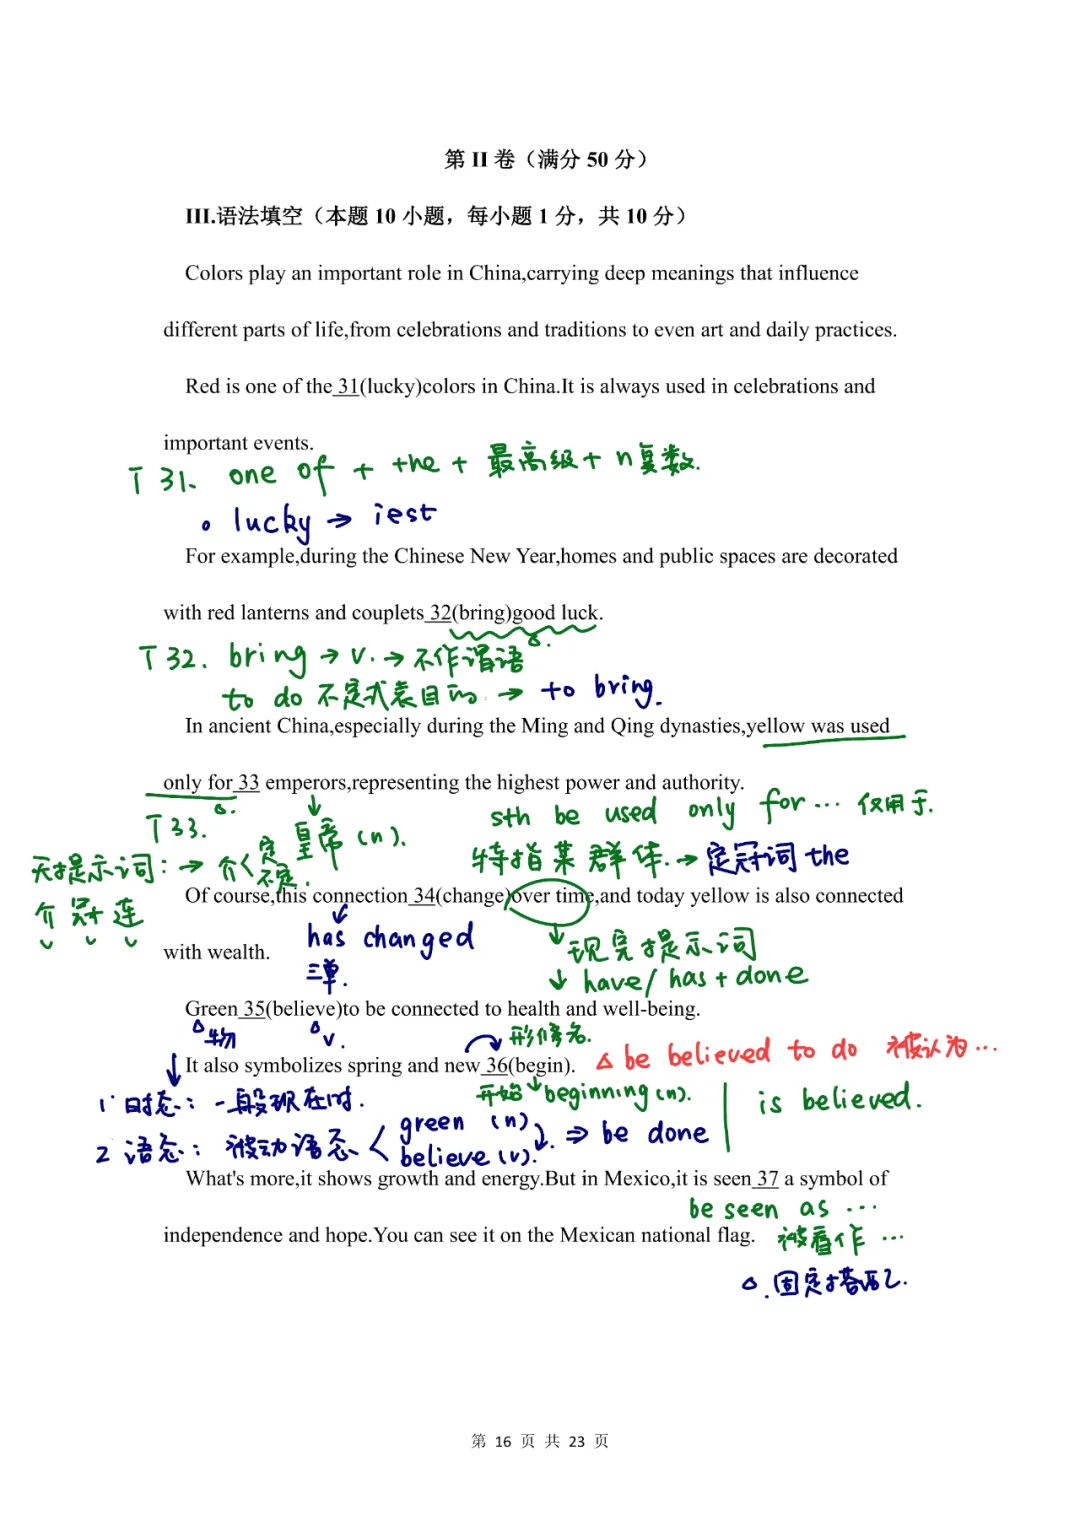 第 II 卷（满分 50 分）
III.语法填空（本题 10 小题，每小题 1 分，共 10 分）
Colors play an important role in China,carrying deep meanings that influence
different parts of life,from celebrations and traditions to even art and daily practices.
Red is one of the 31(lucky)colors in China.It is always used in celebrations and
important events.
T 31. one of + the + 最高级 + n复数.
lucky → iest
For example,during the Chinese New Year,homes and public spaces are decorated
with red lanterns and couplets 32(bring)good luck.
T 32. bring → v. → 不作谓语
to do 不定式表目的 → to bring.
In ancient China,especially during the Ming and Qing dynasties,yellow was used
only for 33 emperors,representing the highest power and authority.
T 33. 皇帝 (n). sth be used only for ... 仅用于.
无提示词: → 介< 定 不定. 特指某群体. → 定冠词 the
介 冠 连
Of course,this connection 34(change)over time,and today yellow is also connected
with wealth.
has changed 现完提示词
三单. have / has + done
Green 35(believe)to be connected to health and well-being.
物 v. 形修名.
It also symbolizes spring and new 36(begin).
be believed to do 被认为 ...
1. 时态: 一般现在时. 开始 beginning (n). is believed.
2 语态: 被动语态 < green (n) believe (v). ⇒ be done
What's more,it shows growth and energy.But in Mexico,it is seen 37 a symbol of
be seen as ...
independence and hope.You can see it on the Mexican national flag.
被看作 ...
固定搭配.
第 16 页 共 23 页